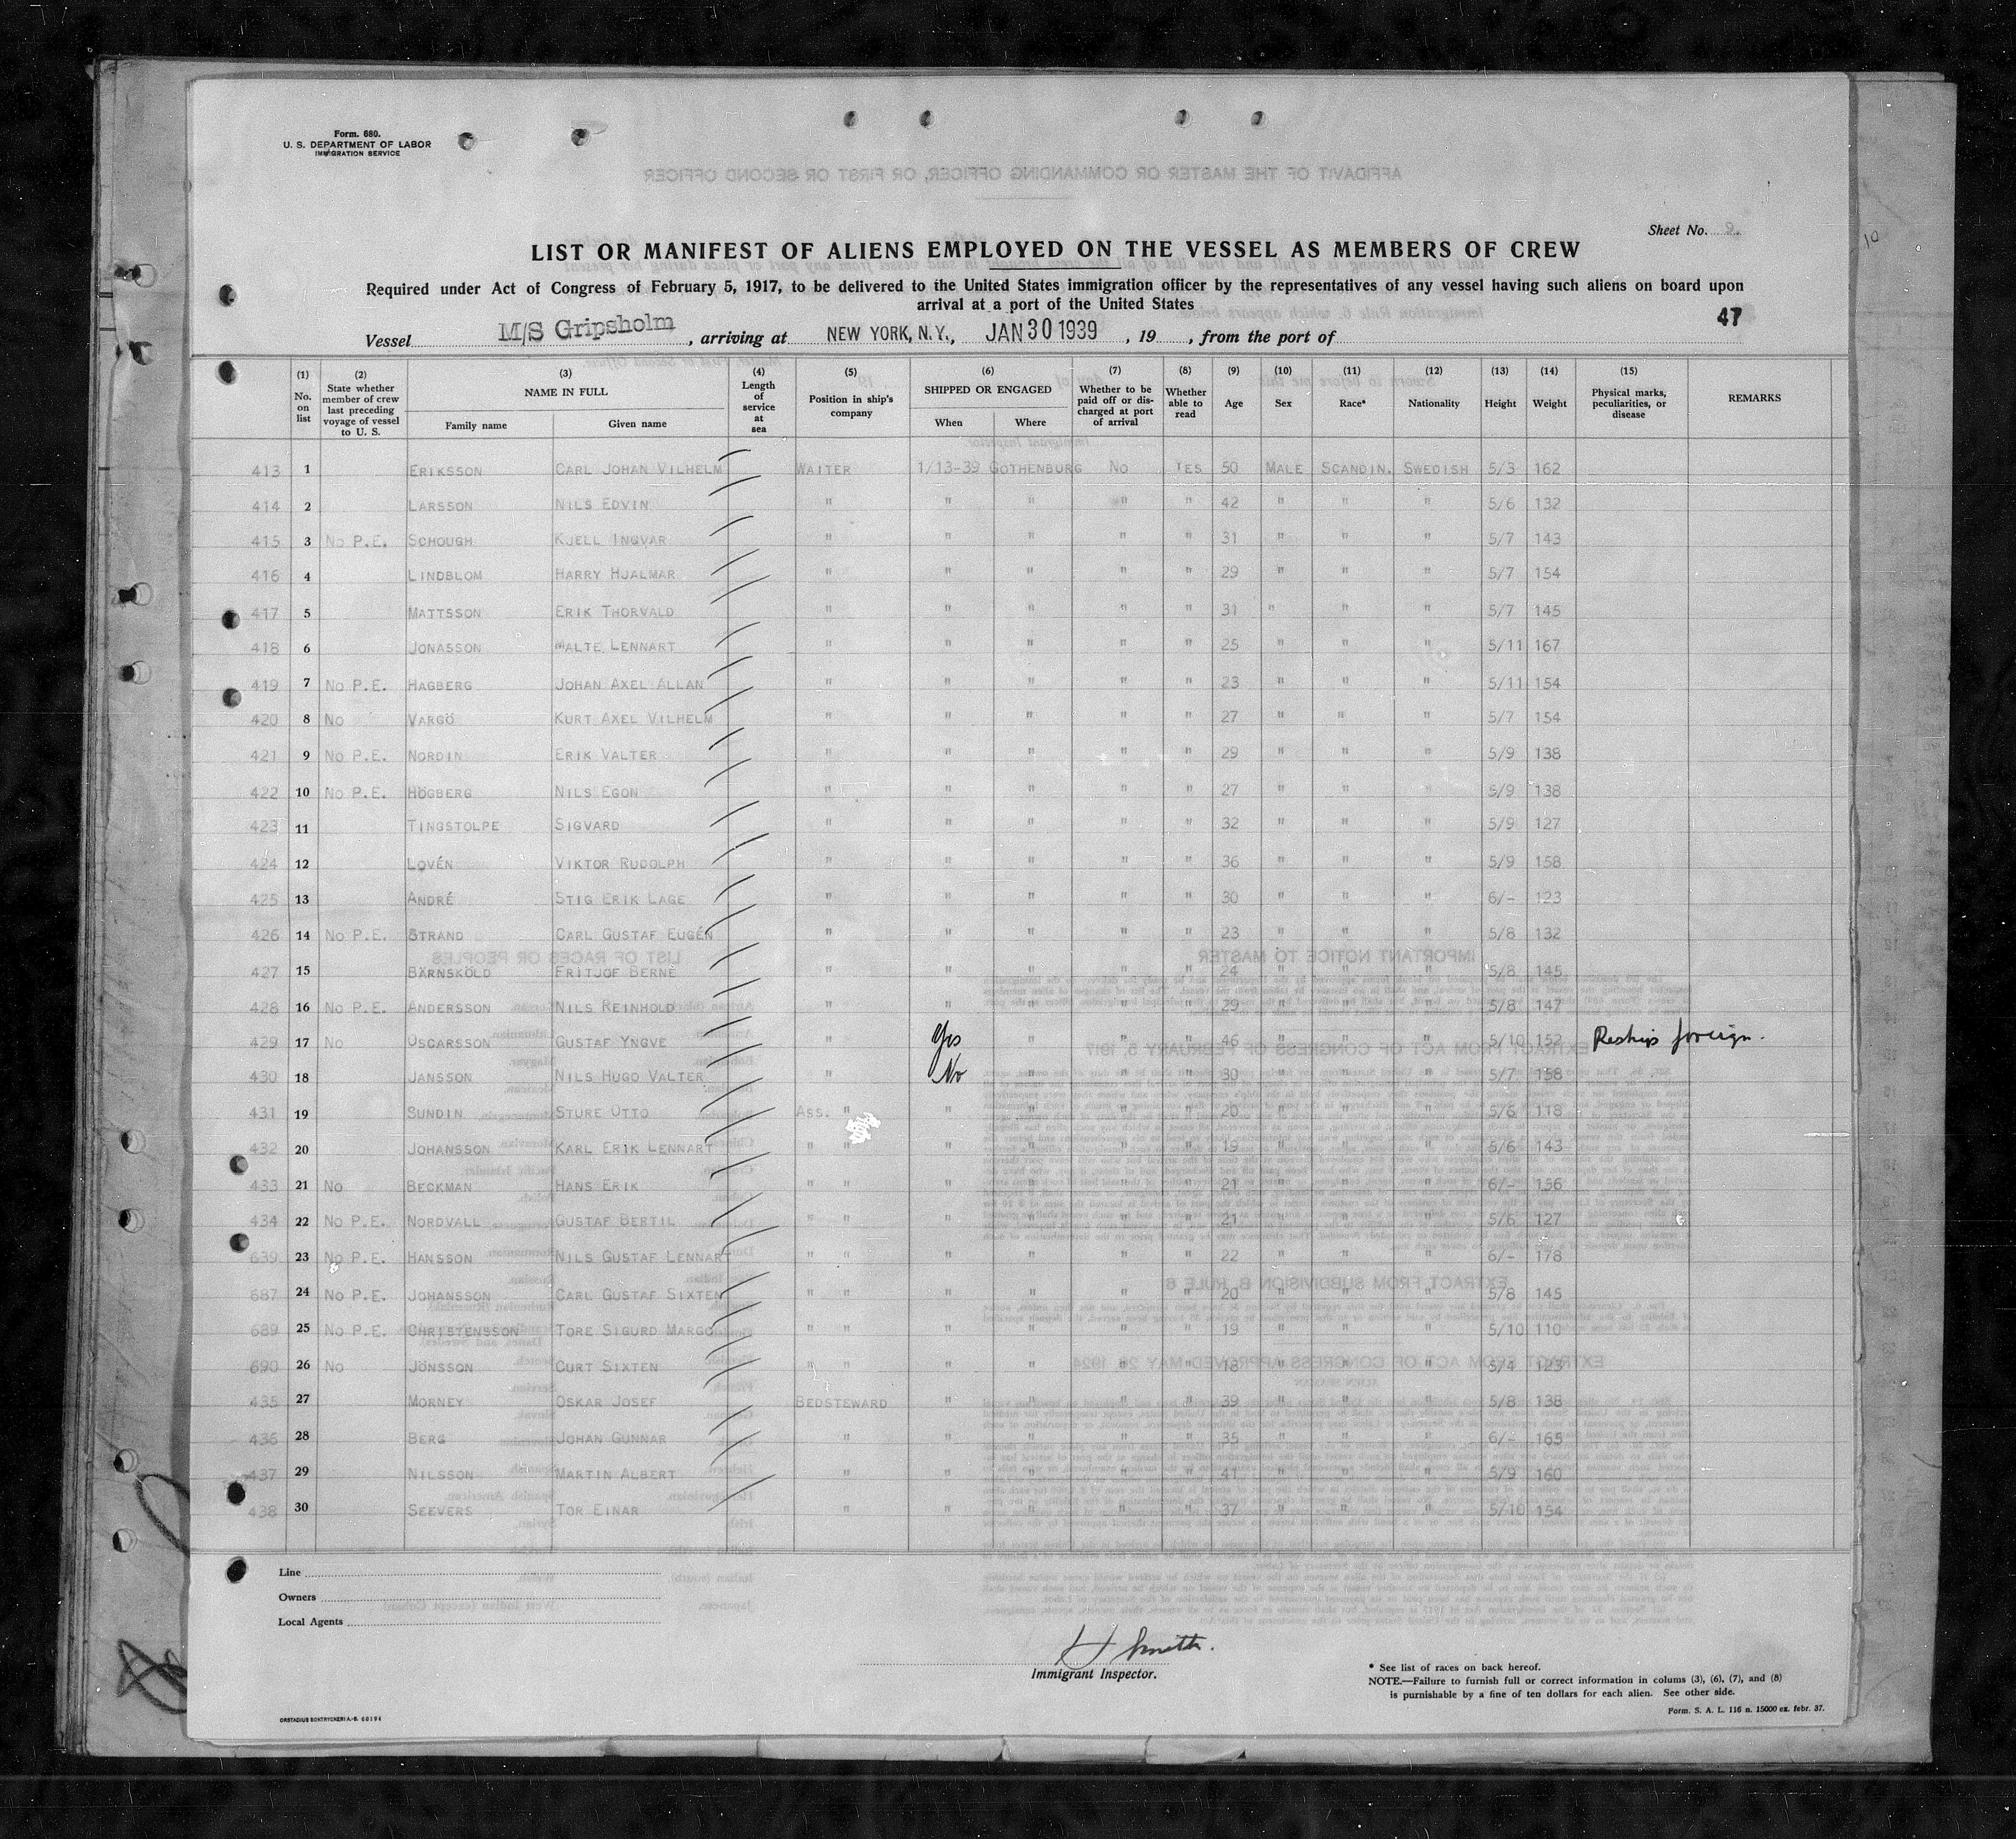 Form. 680.
U. S. DEPARTMENT OF LABOR
IMMIGRATION SERVICE
Sheet No.
10
LIST OR MANIFEST OF ALIENS EMPLOYED ON THE VESSEL AS MEMBERS OF CREW
Required under Act of Congress of February 5, 1917, to be delivered to the United States immigration officer by the representatives of any vessel having such aliens on board upon
arrival at a port of the United States
47
Vessel M/S Gripsholm, arriving at NEW YORK, N.Y., JAN 30 1939, 19 , from the port of
(1) No. on list (2) State whether member of crew last preceding voyage of vessel to U. S. (3) NAME IN FULL Family name Given name (4) Length of service at sea (5) Position in ship's company (6) SHIPPED OR ENGAGED When Where (7) Whether to be paid off or dis-charged at port of arrival (8) Whether able to read (9) Age (10) Sex (11) Race* (12) Nationality (13) Height (14) Weight (15) Physical marks, peculiarities, or disease REMARKS
413 1 ERIKSSON CARL JOHAN VILHELM WAITER 1/13-39 GOTHENBURG No YES 50 MALE SCANDIN. SWEDISH 5/3 162
414 2 LARSSON NILS EDVIN " " " " " 42 " " " 5/6 132
415 3 No P.E. SCHOUGH KJELL INGVAR " " " " " 31 " " " 5/7 143
416 4 LINDBLOM HARRY HJALMAR " " " " " 29 " " " 5/7 154
417 5 MATTSSON ERIK THORVALD " " " " " 31 " " " 5/7 145
418 6 JONASSON MALTE LENNART " " " " " 25 " " " 5/11 167
419 7 No P.E. HAGBERG JOHAN AXEL ALLAN " " " " " 23 " " " 5/11 154
420 8 No VARGÖ KURT AXEL VILHELM " " " " " 27 " " " 5/7 154
421 9 No P.E. NORDIN ERIK VALTER " " " " " 29 " " " 5/9 138
422 10 No P.E. HÖGBERG NILS EGON " " " " " 27 " " " 5/9 138
423 11 TINGSTOLPE SIGVARD " " " " " 32 " " " 5/9 127
424 12 LOVÉN VIKTOR RUDOLPH " " " " " 36 " " " 5/9 158
425 13 ANDRÉ STIG ERIK LAGE " " " " " 30 " " " 6/- 123
426 14 No P.E. STRAND CARL GUSTAF EUGÉN " " " " " 23 " " " 5/8 132
427 15 BÄRNSKÖLD FRITJOF BERNE " " " " " 24 " " " 5/8 145
428 16 No P.E. ANDERSSON NILS REINHOLD " " " " " 29 " " " 5/8 147
429 17 No OSCARSSON GUSTAF YNGVE " Yes " " " 46 " " " 5/10 152 Reships foreign.
430 18 JANSSON NILS HUGO VALTER " No " " " 30 " " " 5/7 158
431 19 SUNDIN STURE OTTO Ass. " " " " " 20 " " " 5/6 118
432 20 JOHANSSON KARL ERIK LENNART " " " " " " 19 " " " 5/6 143
433 21 No BECKMAN HANS ERIK " " " " " " 21 " " " 6/- 156
434 22 No P.E. NORDVALL GUSTAF BERTIL " " " " " " 21 " " " 5/6 127
639 23 No P.E. HANSSON NILS GUSTAF LENNART " " " " " " 22 " " " 6/- 178
687 24 No P.E. JOHANSSON CARL GUSTAF SIXTEN " " " " " " 20 " " " 5/8 145
689 25 No P.E. CHRISTENSSON TORE SIGURD MARGO " " " " " " 19 " " " 5/10 110
690 26 No JÖNSSON CURT SIXTEN " " " " " " 18 " " " 5/4 123
435 27 MORNEY OSKAR JOSEF BEDSTEWARD " " " " 39 " " " 5/8 138
436 28 BERG JOHAN GUNNAR " " " " " 35 " " " 6/- 165
437 29 NILSSON MARTIN ALBERT " " " " " 41 " " " 5/9 160
438 30 SEEVERS TOR EINAR " " " " " 37 " " " 5/10 154
Line
Owners
Local Agents
H Smith.
Immigrant Inspector.
* See list of races on back hereof.
NOTE.—Failure to furnish full or correct information in colums (3), (6), (7), and (8)
is purnishable by a fine of ten dollars for each alien. See other side.
ORSTADIUS BOKTRYCKERI A.-B. 60194
Form. S. A. L. 116 n. 15000 ex. febr. 37.